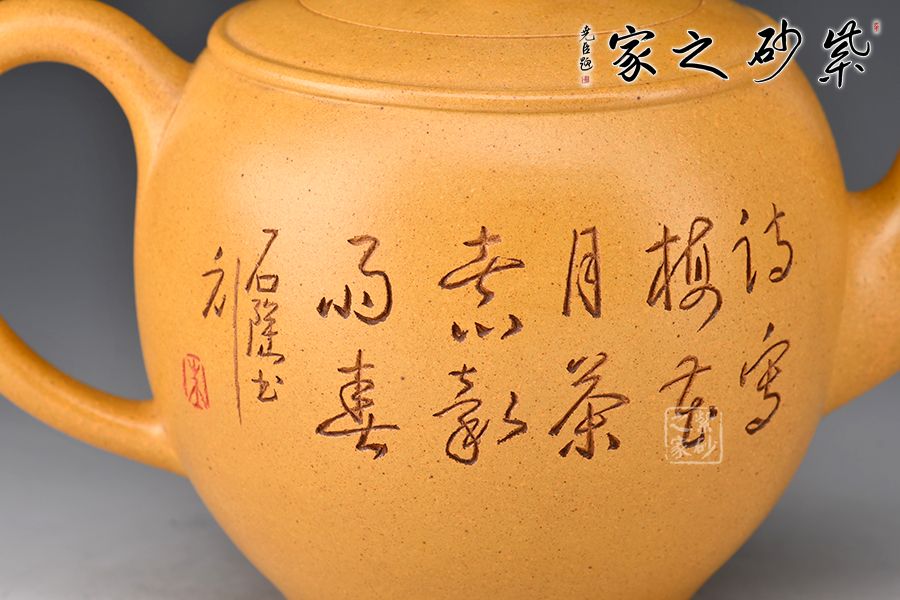 紫砂之家
尧臣题
诗写
梅花
月茶
煮谷
雨春
石隐书
紫砂之家